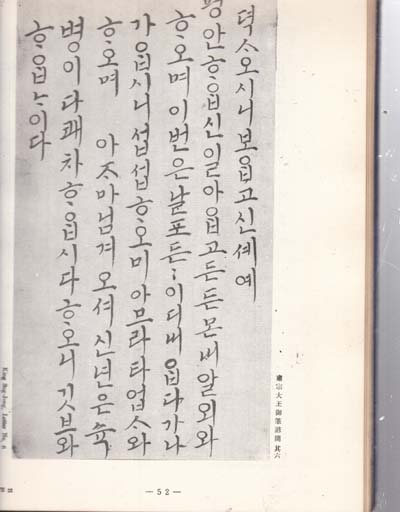 뎍ᄉᆞ오시니 보ᄋᆞᆸ고 신셰예
평안ᄒᆞᄋᆞᆸ신 일 아ᄋᆞᆸ고 든든 몬내 알외와
ᄒᆞ오며 이번은 날포 든〻이 디내ᄋᆞᆸ다가 나
가ᄋᆞᆸ시니 섭섭ᄒᆞ오미 아므라타 업ᄉᆞ와
ᄒᆞ오며 아ᄌᆞ마님겨오셔 신년은 슉
병이 다 쾌차ᄒᆞᄋᆞᆸ시다 ᄒᆞ오니 깃브와
ᄒᆞᄋᆞᆸᄂᆞ이다
肅宗大王御筆諺簡 其六
King Sug-Jong, Letter No. 6
— 52 —